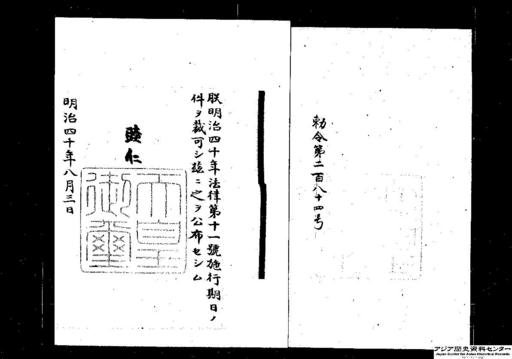 勅令第二百八十四号
朕明治四十年法律第十一號施行期日ノ
件ヲ裁可シ茲ニ之ヲ公布セシム
睦仁
天皇
御璽
明治四十年八月三日
アジア歴史資料センター
Japan Center for Asian Historical Records